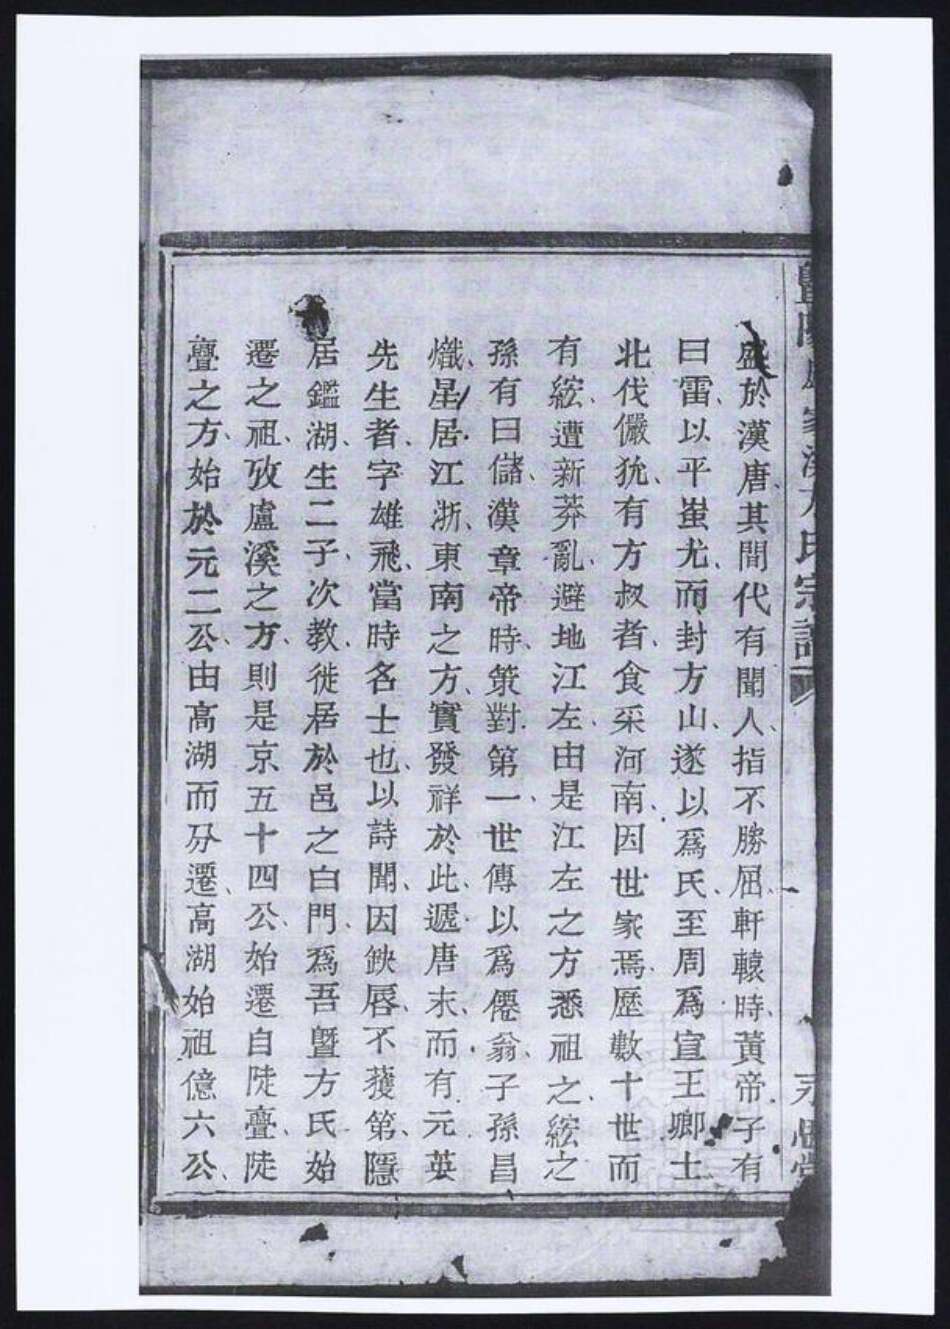 暨陽盧家溪方氏宗譜
永思堂
盛於漢唐其間代有聞人指不勝屈軒轅時黃帝子有
曰雷以平蚩尤而封方山遂以爲氏至周爲宣王卿士
北伐儼狁有方叔者食采河南因世家焉歷數十世而
有綋遭新莽亂避地江左由是江左之方悉祖之綋之
孫有曰儲漢章帝時策對第一世傳以爲僊翁子孫昌
熾星居江浙東南之方實發祥於此遞唐末而有元英
先生者字雄飛當時名士也以詩聞因缺唇不獲第隱
居鑑湖生二子次教徙居於邑之白門爲吾暨方氏始
遷之祖攷盧溪之方則是京五十四公始遷自陡亹陡
亹之方始於元二公由高湖而分遷高湖始祖億六公